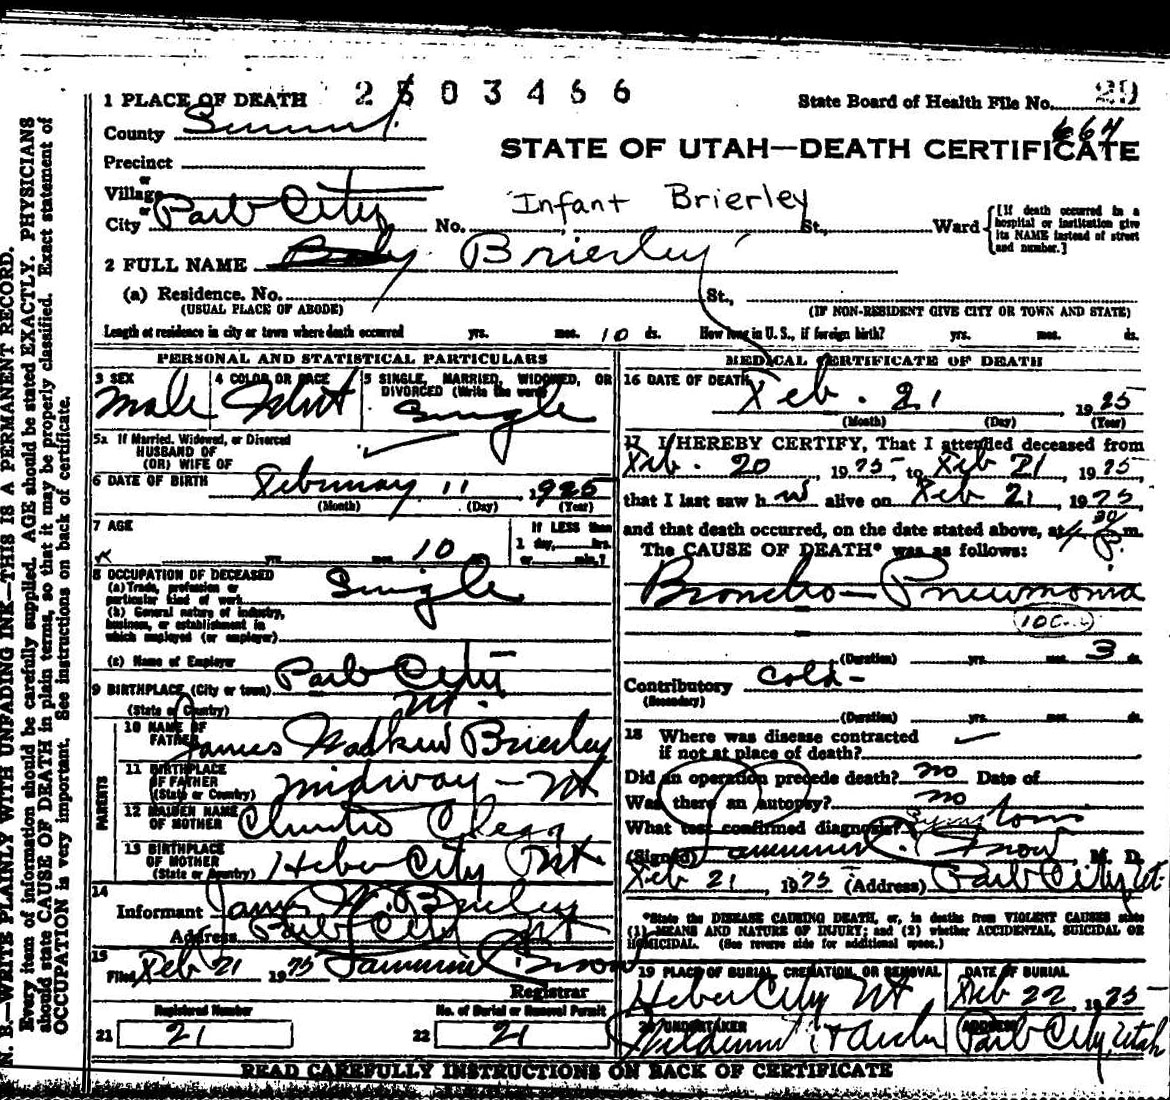 N. B.—WRITE PLAINLY WITH UNFADING INK—THIS IS A PERMANENT RECORD.
Every item of information should be carefully supplied. AGE should be stated EXACTLY. PHYSICIANS
should state CAUSE OF DEATH in plain terms, so that it may be properly classified. Exact statement of
OCCUPATION is very important. See instructions on back of certificate.
1 PLACE OF DEATH 2503466 State Board of Health File No. 29
664
County Summit
STATE OF UTAH—DEATH CERTIFICATE
Precinct
or
Village
or
City Park City No. St., Ward
Infant Brierley
[If death occurred in a hospital or institution give its NAME instead of street and number.]
2 FULL NAME Baby Brierley
(a) Residence. No. St.,
(USUAL PLACE OF ABODE) (IF NON-RESIDENT GIVE CITY OR TOWN AND STATE)
Length of residence in city or town where death occurred yrs. mos. 10 ds. How long in U. S., if foreign birth? yrs. mos. ds.
PERSONAL AND STATISTICAL PARTICULARS
3 SEX Male
4 COLOR OR RACE Whit
5 SINGLE, MARRIED, WIDOWED, OR DIVORCED (Write the word) Single
5a If Married, Widowed, or Divorced
HUSBAND OF
(OR) WIFE OF
6 DATE OF BIRTH February 11, 1925
(Month) (Day) (Year)
7 AGE yrs. mos. 10
If LESS than
1 day, hrs.
or min.?
8 OCCUPATION OF DECEASED Single
(a) Trade, profession or
particular kind of work
(b) General nature of industry,
business, or establishment in
which employed (or employer)
(c) Name of Employer
9 BIRTHPLACE (City or town) Park City
(State or Country) Ut.
PARENTS
10 NAME OF FATHER James Brierley
11 BIRTHPLACE OF FATHER (State or Country) Midway - Ut
12 MAIDEN NAME OF MOTHER Clegg
13 BIRTHPLACE OF MOTHER (State or Country) Heber City Ut
14
Informant James M. Brierley
Address Park City Ut
15
Filed Feb 21 1925 Snow
Registrar
Registered Number
21 21
No. of Burial or Removal Permit
22 21
MEDICAL CERTIFICATE OF DEATH
16 DATE OF DEATH Feb. 21, 1925
(Month) (Day) (Year)
17 I HEREBY CERTIFY, That I attended deceased from
Feb. 20, 1925, to Feb 21, 1925,
that I last saw h alive on Feb 21, 1925,
and that death occurred, on the date stated above, at 4 30 P. m.
The CAUSE OF DEATH* was as follows:
Broncho-Pneumonia
(Duration) yrs. mos. 3 ds.
Contributory Cold-
(Secondary)
(Duration) yrs. mos. ds.
18 Where was disease contracted
if not at place of death?
Did an operation precede death? no Date of
Was there an autopsy? no
What test confirmed diagnosis?
(Signed) Snow, M. D.
Feb 21, 1925 (Address) Park City, Ut.
*State the DISEASE CAUSING DEATH, or, in deaths from VIOLENT CAUSES state
(1) MEANS AND NATURE OF INJURY; and (2) whether ACCIDENTAL, SUICIDAL OR
HOMICIDAL. (See reverse side for additional space.)
19 PLACE OF BURIAL, CREMATION, OR REMOVAL Heber City Ut
DATE OF BURIAL Feb 22, 1925-
20 UNDERTAKER
ADDRESS Park City, Utah
READ CAREFULLY INSTRUCTIONS ON BACK OF CERTIFICATE